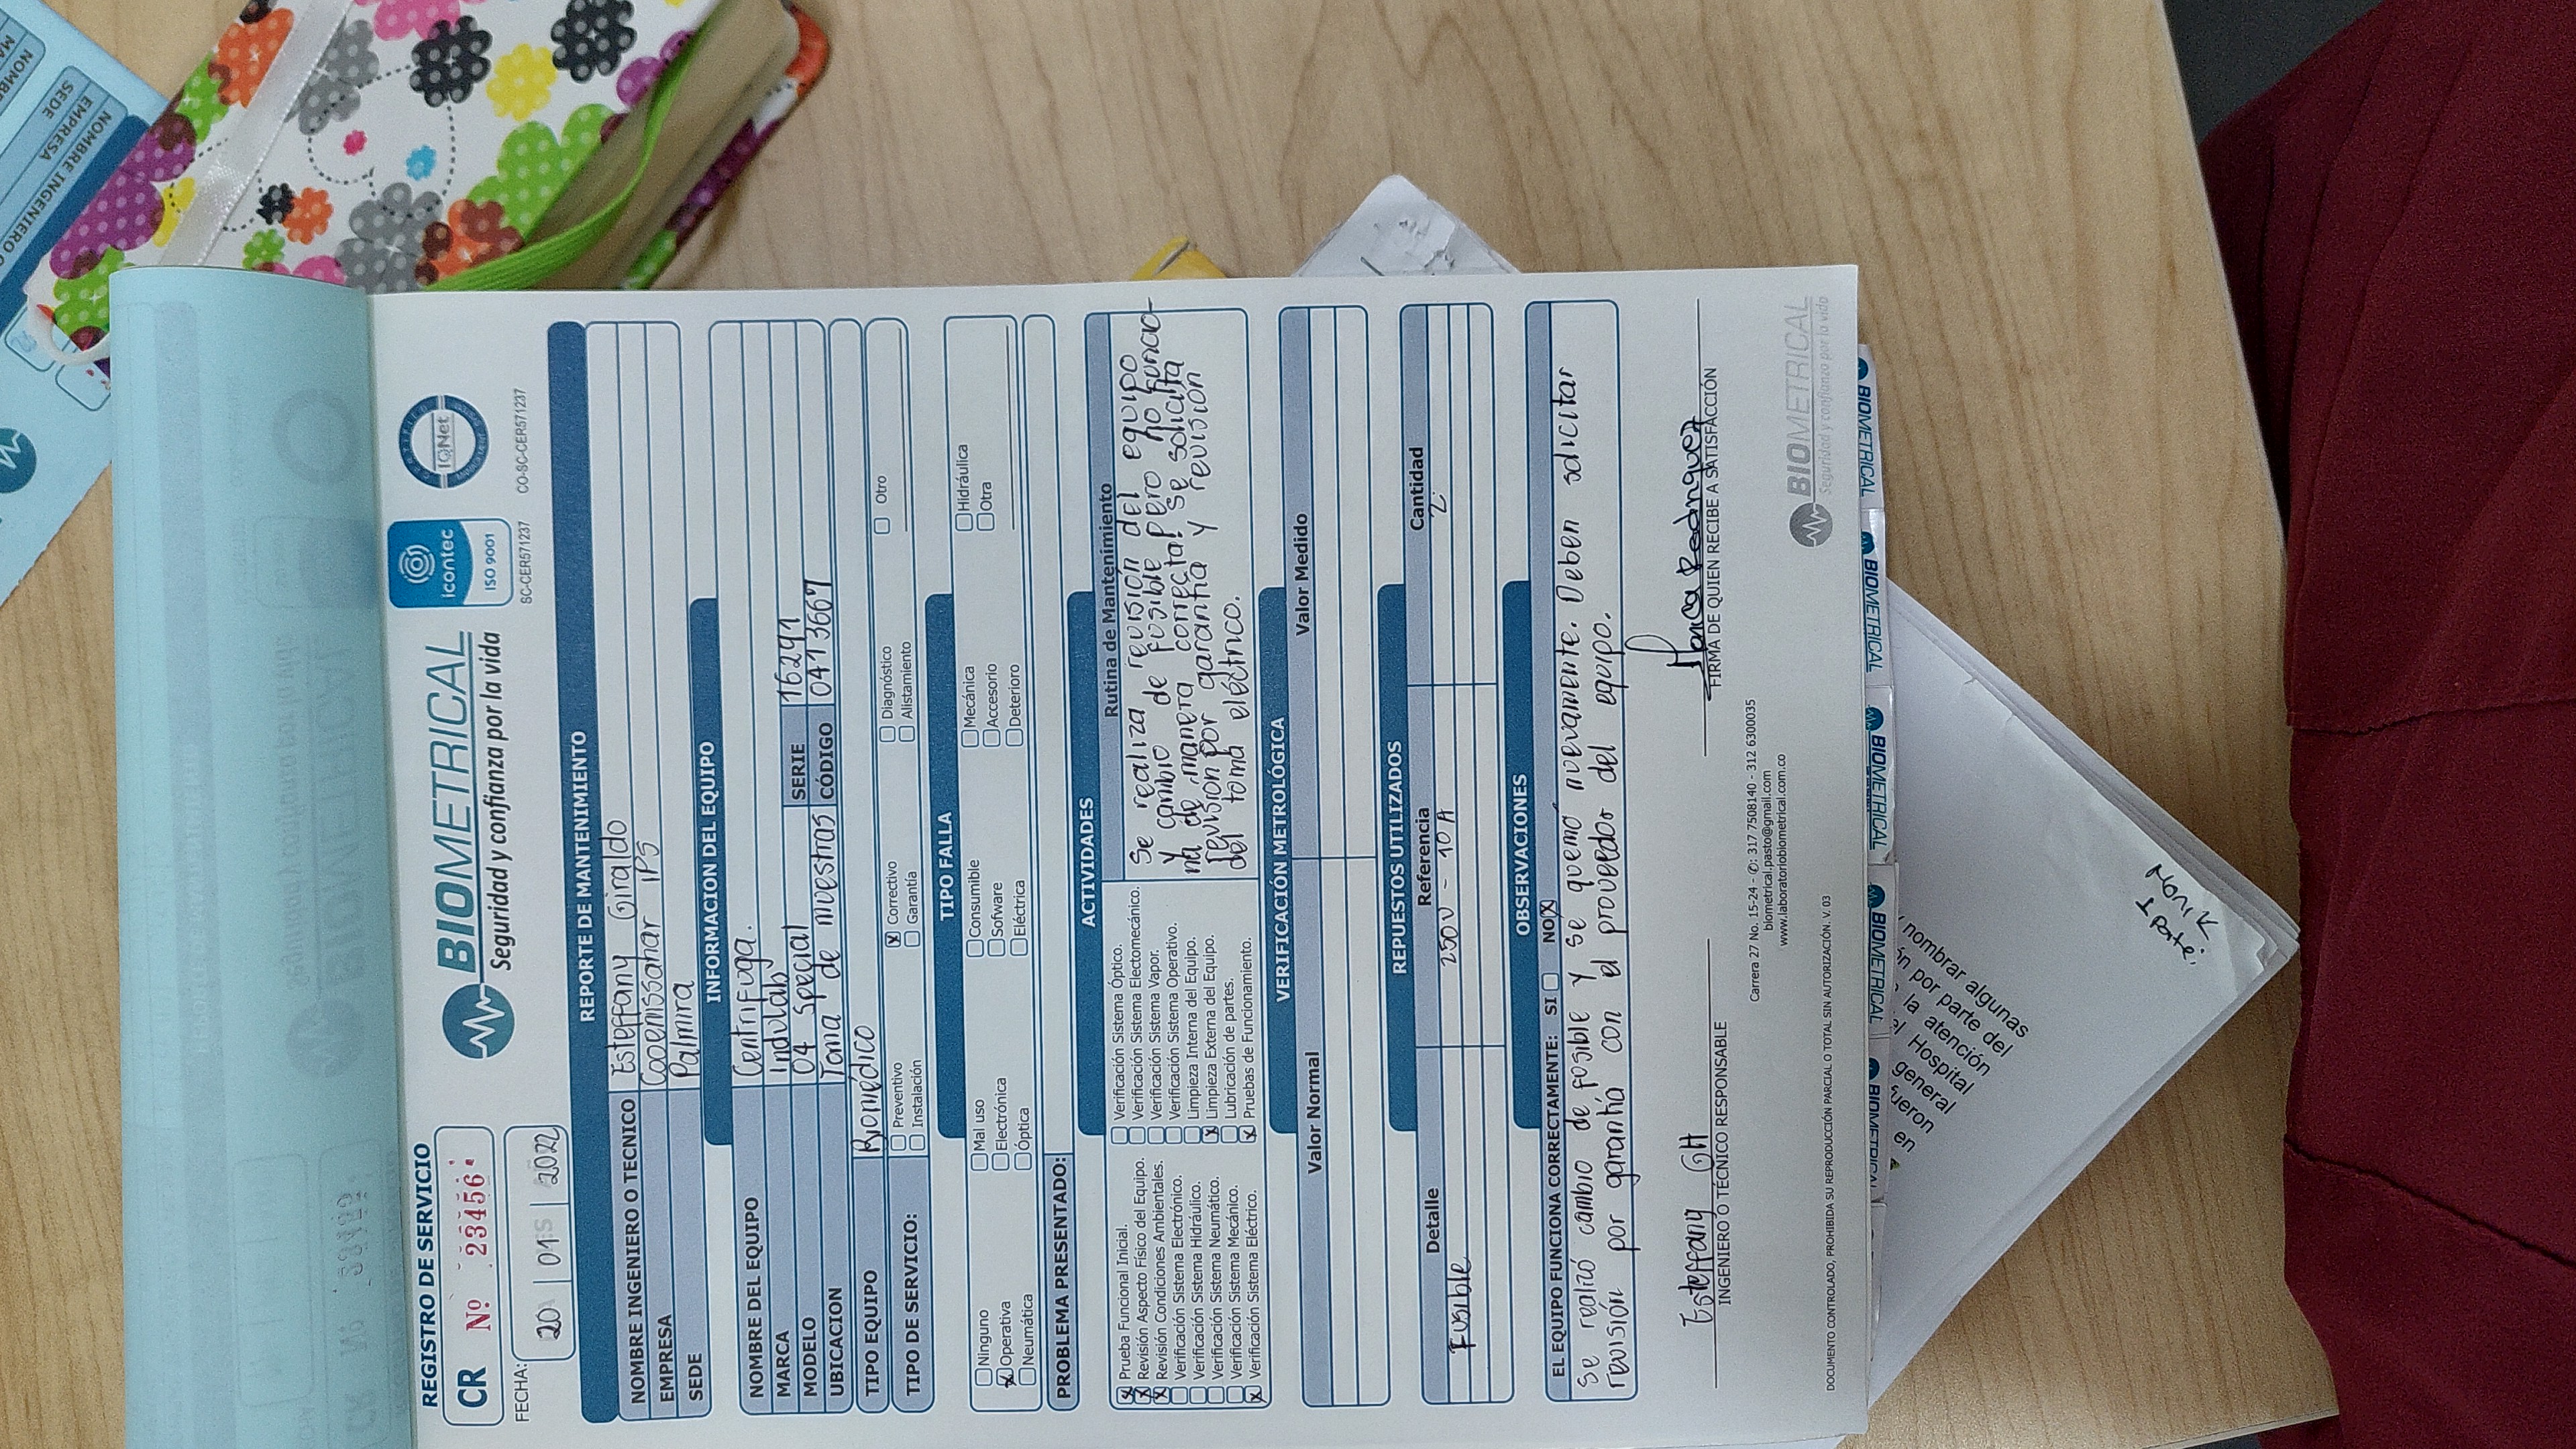 REGISTRO DE SERVICIO
CR Nº 23456
FECHA: 20 01 2022
BIOMETRICAL
Seguridad y confianza por la vida
icontec
ISO 9001
SC-CER571237
IQNet
CO-SC-CER571237
REPORTE DE MANTENIMIENTO
NOMBRE INGENIERO O TECNICO Esteffany Giraldo
EMPRESA IPS
SEDE Palmira
INFORMACION DEL EQUIPO
NOMBRE DEL EQUIPO Centrifuga.
MARCA Indulab
MODELO 04 special SERIE 16291
UBICACION Toma de muestras CÓDIGO 0413667
TIPO EQUIPO Biomédico
TIPO DE SERVICIO: Preventivo X Correctivo Diagnóstico Otro
Instalación Garantía Alistamiento
TIPO FALLA
Ninguno Mal uso Consumible Mecánica Hidráulica
X Operativa Electrónica Sofware Accesorio Otra
Neumática Óptica Eléctrica Deterioro
PROBLEMA PRESENTADO:
ACTIVIDADES
X Prueba Funcional Inicial.
X Revisión Aspecto Físico del Equipo.
X Revisión Condiciones Ambientales.
Verificación Sistema Electrónico.
Verificación Sistema Hidráulico.
Verificación Sistema Neumático.
Verificación Sistema Mecánico.
X Verificación Sistema Eléctrico.
Verificación Sistema Óptico.
Verificación Sistema Electomecánico.
Verificación Sistema Vapor.
Verificación Sistema Operativo.
Limpieza Interna del Equipo.
X Limpieza Externa del Equipo.
Lubricación de partes.
X Pruebas de Funcionamiento.
Rutina de Mantenimiento
Se realiza revisión del equipo
y cambio de fusible pero no funcio-
na de manera correcta! Se solicita
revisión por garantía y revisión
del toma eléctrico.
VERIFICACIÓN METROLÓGICA
Valor Normal Valor Medido
REPUESTOS UTILIZADOS
Detalle Referencia Cantidad
Fusible 250V - 10 A 2
OBSERVACIONES
EL EQUIPO FUNCIONA CORRECTAMENTE: SI NO X
Se realizó cambio de fusible y se quemó nuevamente. Deben solicitar
revisión por garantía con el proveedor del equipo.
Esteffany GH
INGENIERO O TÉCNICO RESPONSABLE
Monica Rodriguez
FIRMA DE QUIEN RECIBE A SATISFACCIÓN
Carrera 27 No. 15-24 - ✆: 317 7508140 - 312 6300035
biometrical.pasto@gmail.com
www.laboratoriobiometrical.com.co
BIOMETRICAL
Seguridad y confianza por la vida
DOCUMENTO CONTROLADO, PROHIBIDA SU REPRODUCCIÓN PARCIAL O TOTAL SIN AUTORIZACIÓN. V. 03
BIOMETRICAL BIOMETRICAL BIOMETRICAL BIOMETRICAL BIOMETRICAL
nombrar algunas
por parte del
la atención
Hospital
general
fueron
en
NOMBRE INGENIERO O
EMPRESA
SEDE